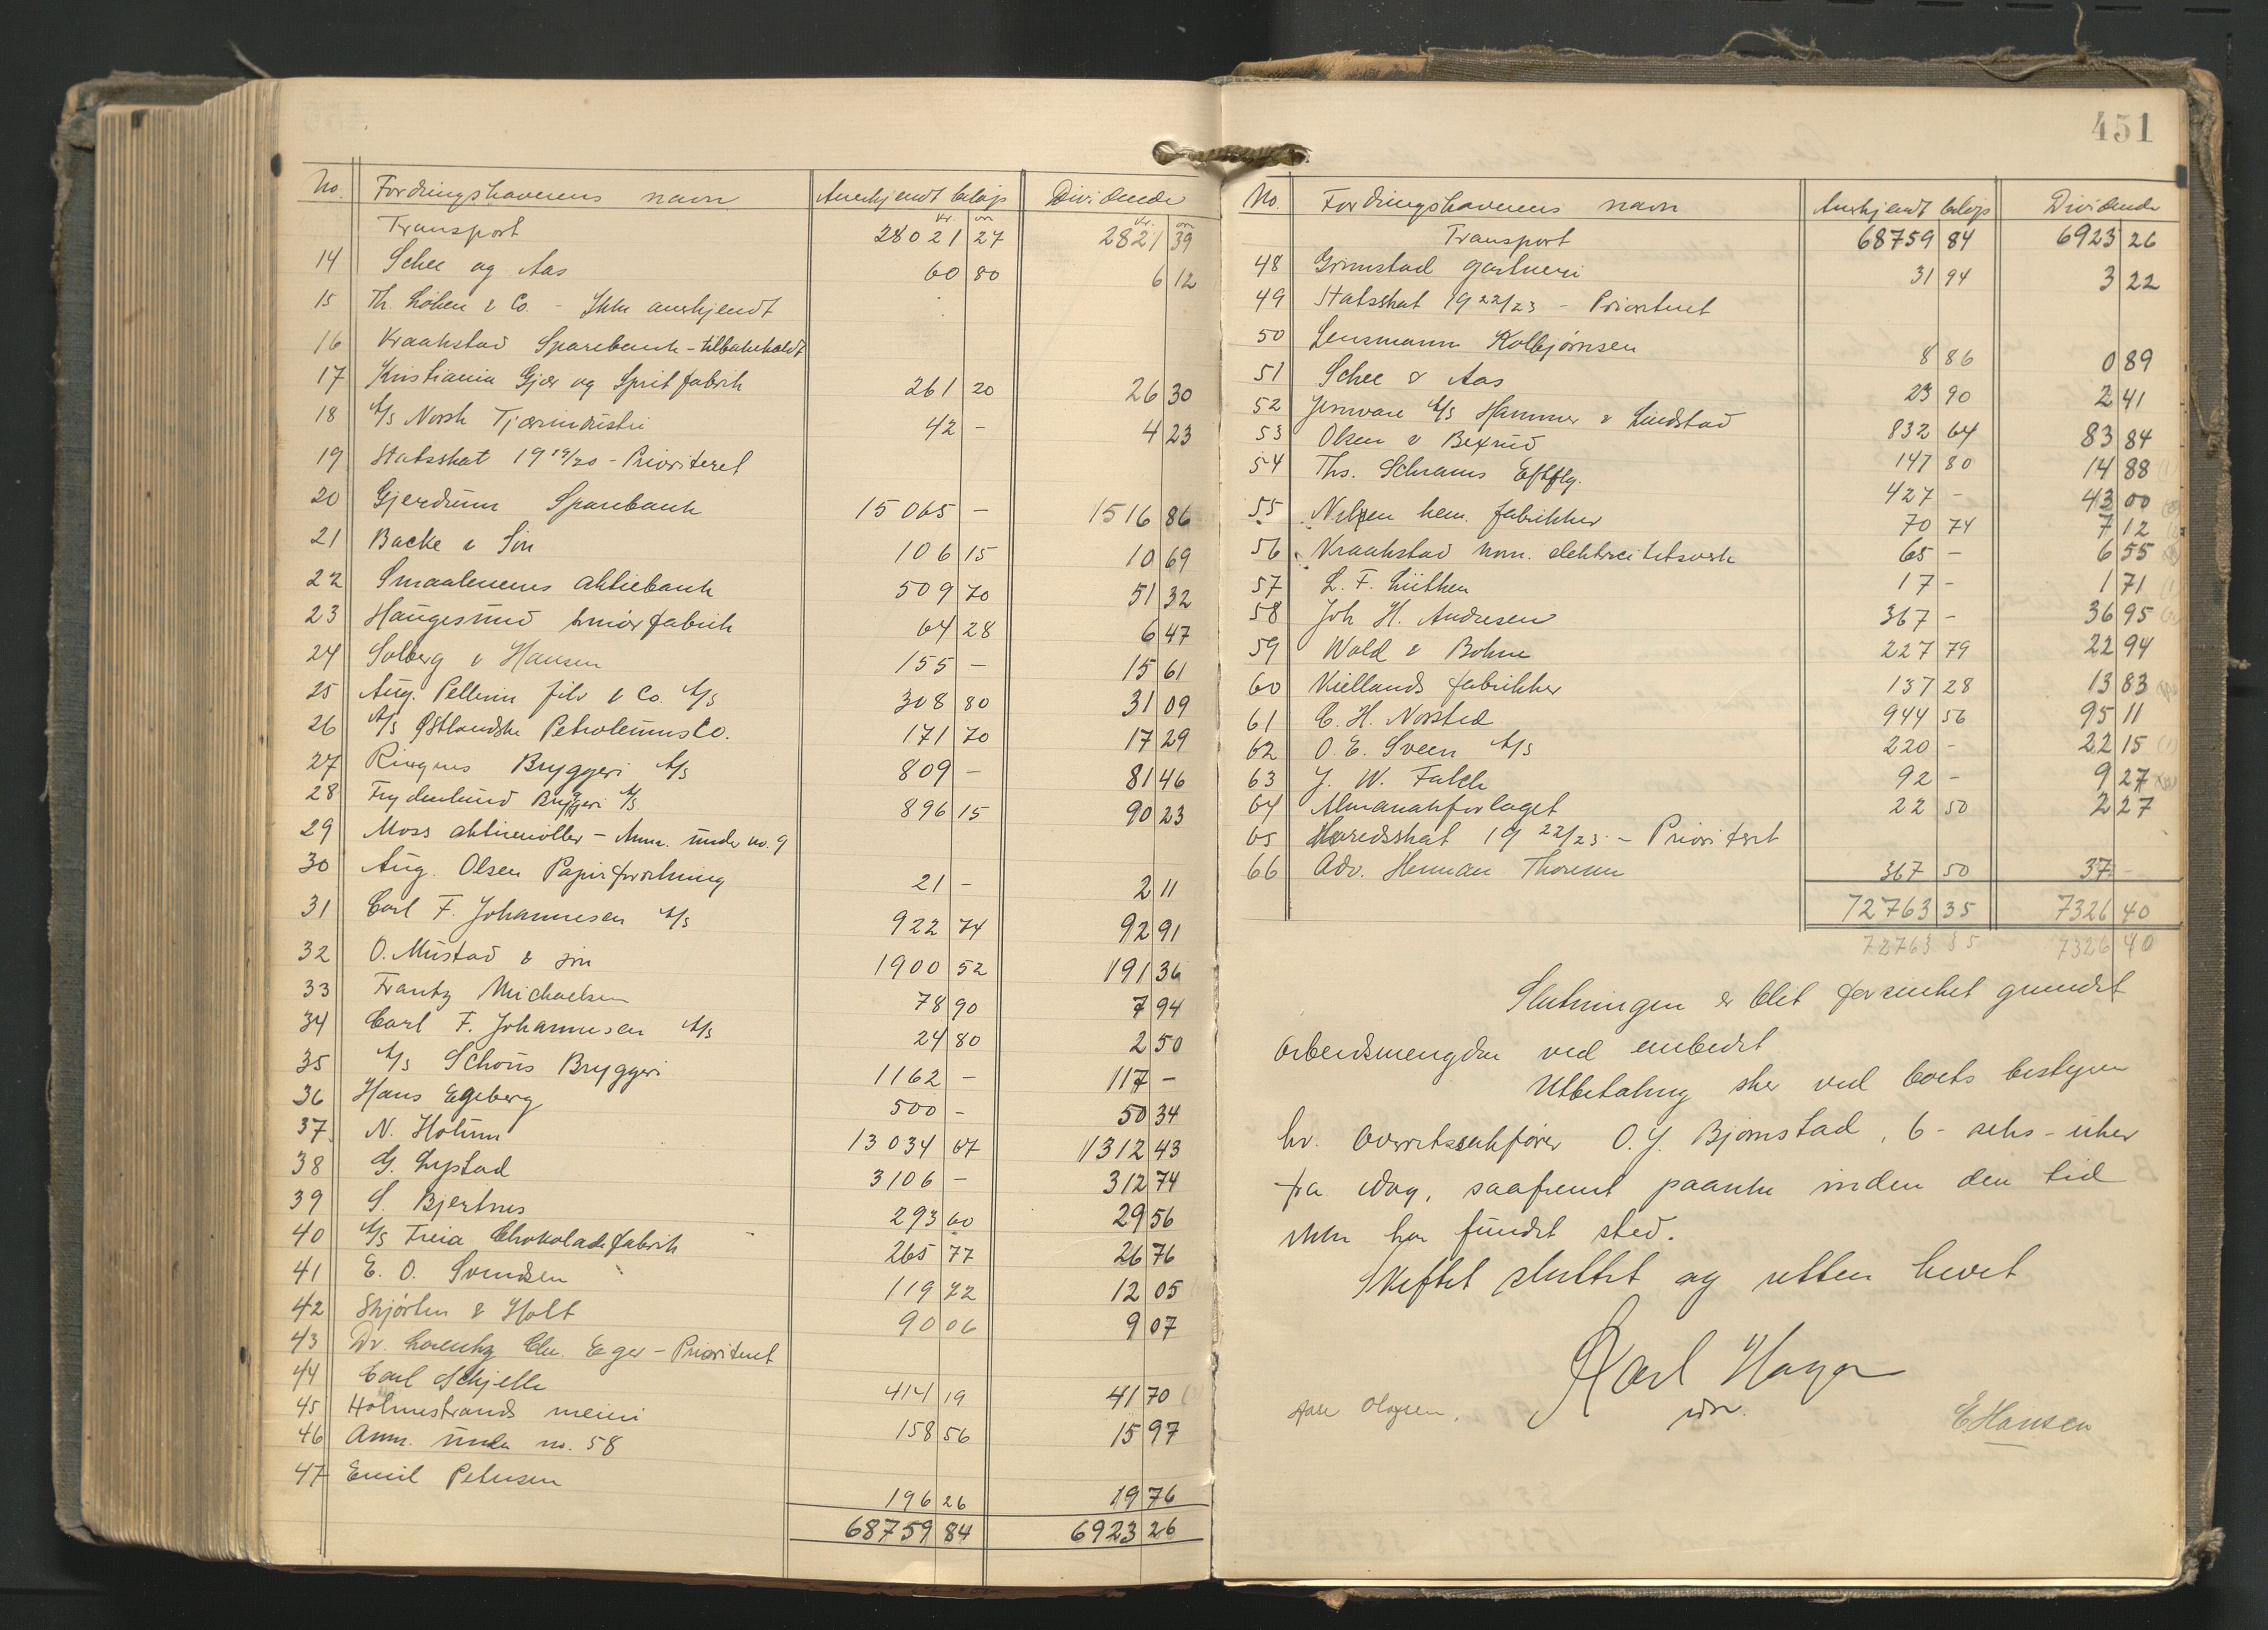 No. Fordringshaverens navn Anerkjendt beløp Dividende
kr. øre kr. øre
Transport 28021 27 2821 39
14 Schee og Aas 60 80 6 12
15 Th. Løken & Co. - Ikke anerkjendt
16 Kraakstad Sparebank - tilbakekaldt
17 Kristiania Gjær og Spritfabrik 261 20 26 30
18 A/S Norsk Tjæreindustri 42 - 4 23
19 Statsskat 1919/20 - Prioriteret
20 Gjerdrum Sparebank 15065 - 1516 86
21 Backe & Søn 106 15 10 69
22 Smaalenenes aktiebank 509 70 51 32
23 Haugesund smørfabrik 64 28 6 47
24 Solberg & Hansen 155 - 15 61
25 Aug. Pellerin fils & Co. A/S 308 80 31 09
26 A/S Østlandske Petroleumsco. 171 70 17 29
27 Ringnes Bryggeri A/S 809 - 81 46
28 Frydenlund Bryggeri A/S 896 15 90 23
29 Moss aktiemøller - Anm. under no. 9
30 Aug. Olsen Papirforretning 21 - 2 11
31 Carl F. Johannesen A/S 922 74 92 91
32 O. Mustad & søn 1900 52 191 36
33 Frantz Michaelsen 78 90 7 94
34 Carl F. Johannesen A/S 24 80 2 50
35 A/S Schous Bryggeri 1162 - 117 -
36 Hans Egeberg 500 - 50 34
37 N. Holum 13034 67 1312 43
38 G. Lystad 3106 - 312 74
39 S. Bjertnes 293 60 29 56
40 A/S Freia Chokoladefabrik 265 77 26 76
41 E. O. Svendsen 119 72 12 05
42 Skjørten & Holt 90 06 9 07
43 Dr. Lorentz Chr. Eger - Prioriteret
44 Carl Schjelle 414 19 41 70
45 Holmestrands meieri 158 56 15 97
46 Anm. under no. 58
47 Emil Petersen 196 26 19 76
68759 84 6923 26
451
No. Fordringshaverens navn Anerkjendt beløp Dividende
Transport 68759 84 6923 26
48 Grimstad gartneri 31 94 3 22
49 Statsskat 1922/23 - Prioriteret
50 Lensmann Kolbjørnsen 8 86 0 89
51 Schee & Aas 23 90 2 41
52 Jernvare A/S Hammer & Lindstad 832 64 83 84
53 Olsen & Bexrud 147 80 14 88
54 Ths. Schrams Eftflg. 427 - 43 00
55 Nelsen kem. fabrikker 70 74 7 12
56 Kraakstad kom. elektricitetsverk 65 - 6 55
57 L. F. Lüthen 17 - 1 71
58 Joh H. Andresen 367 - 36 95
59 Wold & Bohne 227 79 22 94
60 Kiellands fabrikker 137 28 13 83
61 C. H. Norsted 944 56 95 11
62 O. E. Sveen A/S 220 - 22 15
63 J. W. Falch 92 - 9 27
64 Almanakforlaget 22 50 2 27
65 Heredsskat 1922/23 - Prioriteret
66 Adv. Herman Thoresen 367 50 37 -
72763 35 7326 40
72763 35 7326 40
Slutningen er blit forsinket grundet
arbeidsmengden ved embedet.
Utbetaling sker ved boets bestyrer
hr. Overretssakfører O. J. Bjørnstad, 6 - seks - uker
fra idag, saafremt paanke inden den tid
ikke har fundet sted.
Skiftet sluttet og retten hevet
Karl Hagen
Aase Olafsen. EHansen